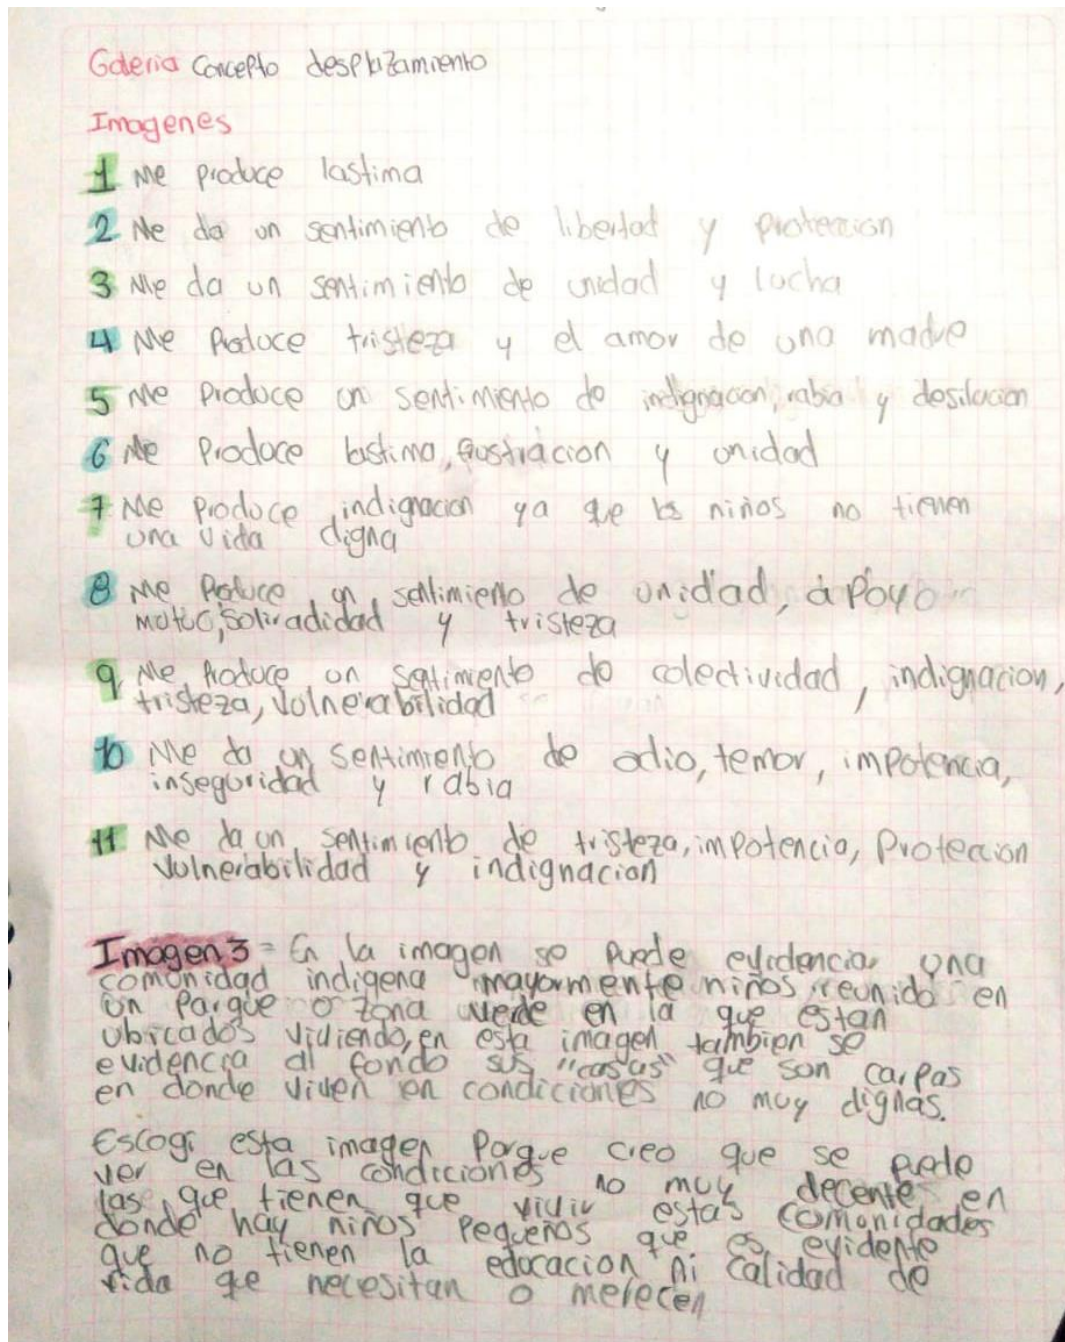 Galeria Concepto desplazamiento
Imagenes
1 Me produce lastima
2 Me da un sentimiento de libertad y proteccion
3 Me da un sentimiento de unidad y lucha
4 Me Produce tristeza y el amor de una madre
5 Me Produce un sentimiento de indignacion, rabia y desilucion
6 Me Produce lastima, frustracion y unidad
7 Me Produce indignacion ya que los niños no tienen
una vida digna
8 Me Produce un sentimiento de unidad, apoyo
mutuo, soliradidad y tristeza
9 Me Produce un sentimiento de colectividad, indignacion,
tristeza, Vulnerabilidad
10 Me da un sentimiento de odio, temor, impotencia,
inseguridad y rabia
11 Me da un sentimiento de tristeza, impotencia, Proteccion
Vulnerabilidad y indignacion
Imagen 3 = En la imagen se puede evidenciar una
comunidad indigena mayormente niños reunido en
un Parque o zona verde en la que estan
ubicados viviendo, en esta imagen tambien se
evidencia al fondo sus "casas" que son carpas
en donde viven en condiciones no muy dignas.
Escogi esta imagen Porque creo que se puede
ver en las condiciones no muy decentes en
las que tienen que vivir estas comunidades
donde hay niños pequeños que es evidente
que no tienen la educacion ni calidad de
vida que necesitan o merecen